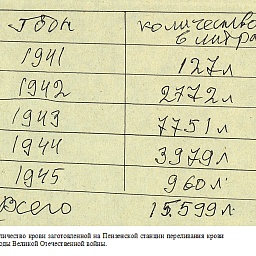 годы количество
в литрах
1941 127л
1942 2772л
1943 7751л
1944 3979л
1945 960л
Всего 15.599л.
личество крови заготовленной на Пензенской станции переливания крови
оды Великой Отечественной войны.